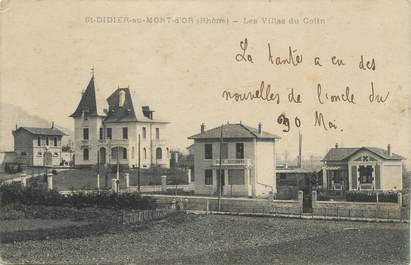 St-DIDIER-au-MONT-d'OR (Rhône) - Les Villas du Colin
La tante a eu des
nouvelles de l'oncle du
30 Mai.